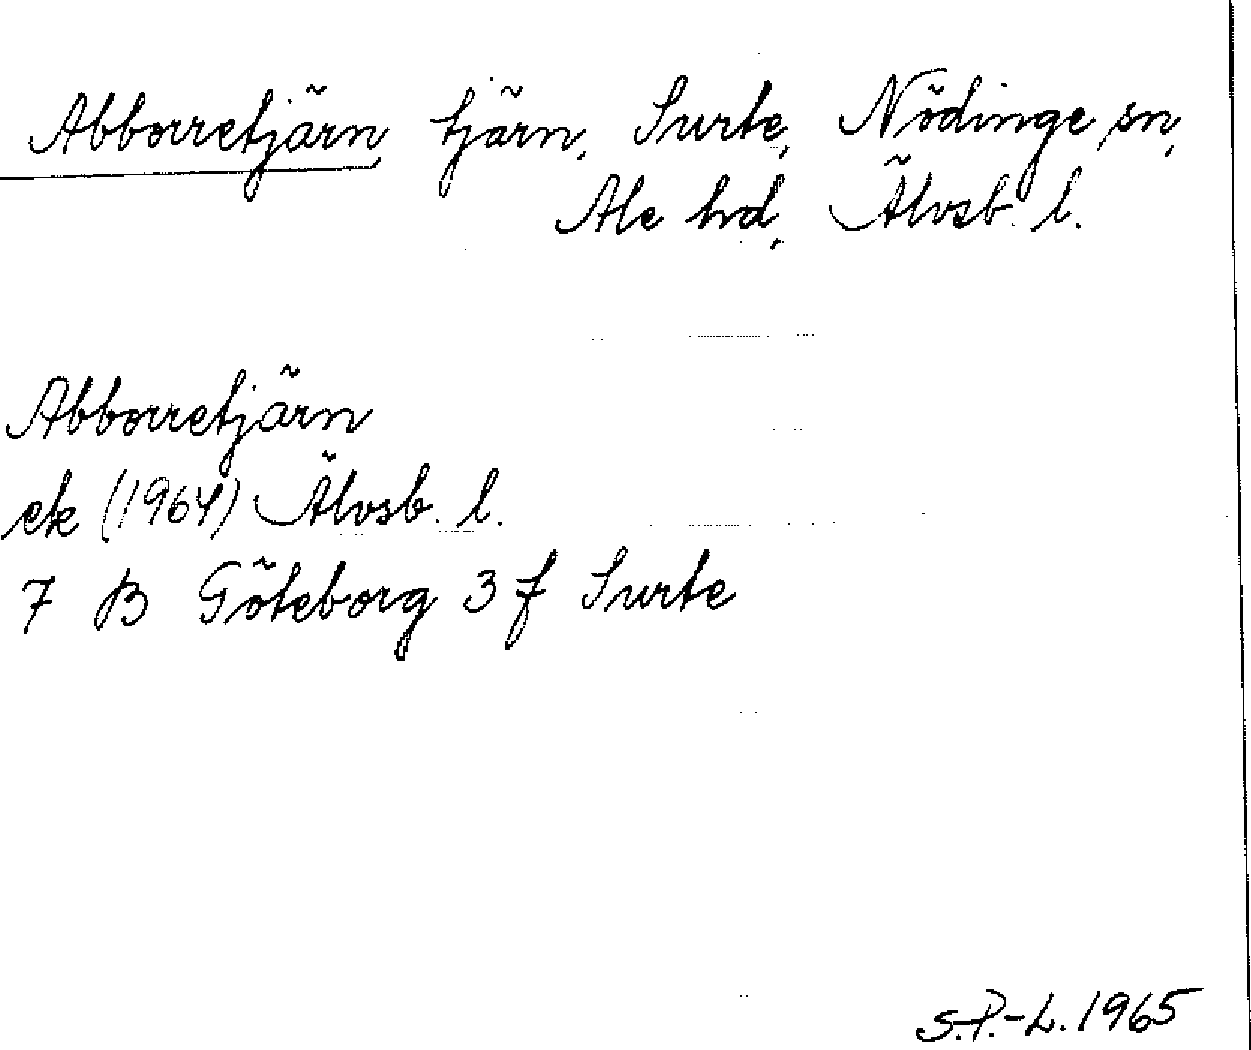 Abborretjärn, tjärn, Surte, Nödinge sn,
Ale hd, Älvsb. l.
Abborretjärn
ek (1964) Älvsb. l.
7 B Göteborg 3 f Surte
S.P.-L. 1965